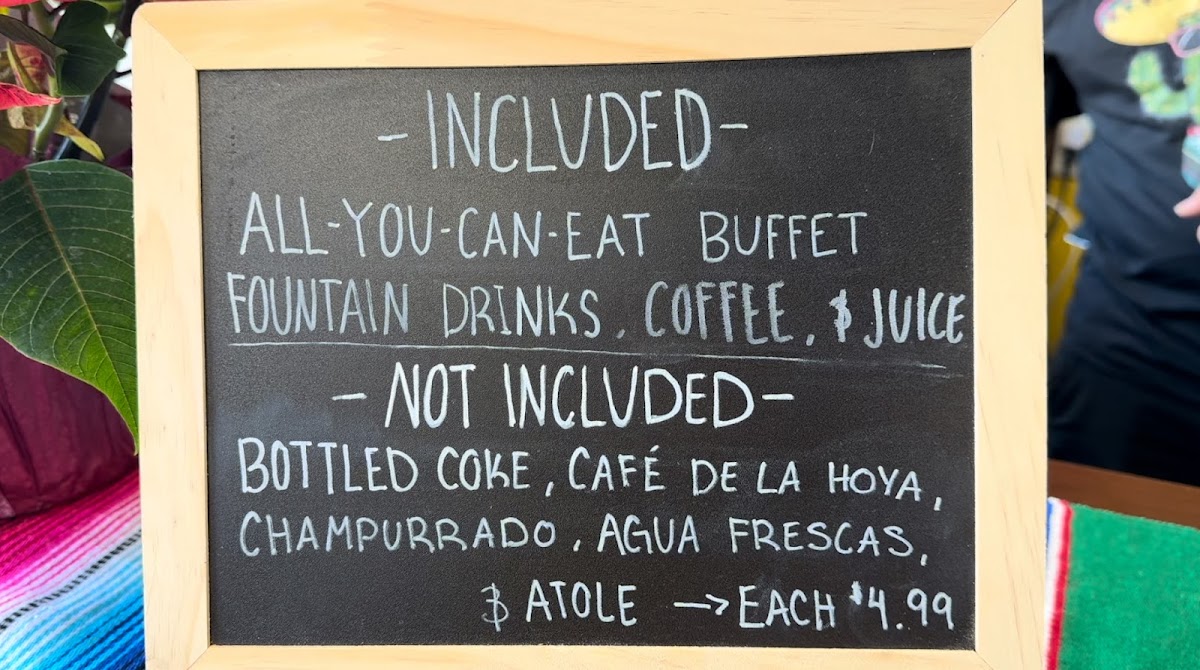 - INCLUDED -
ALL-YOU-CAN-EAT BUFFET
FOUNTAIN DRINKS, COFFEE, & JUICE
- NOT INCLUDED -
BOTTLED COKE, CAFÉ DE LA HOYA,
CHAMPURRADO, AGUA FRESCAS,
& ATOLE → EACH $4.99